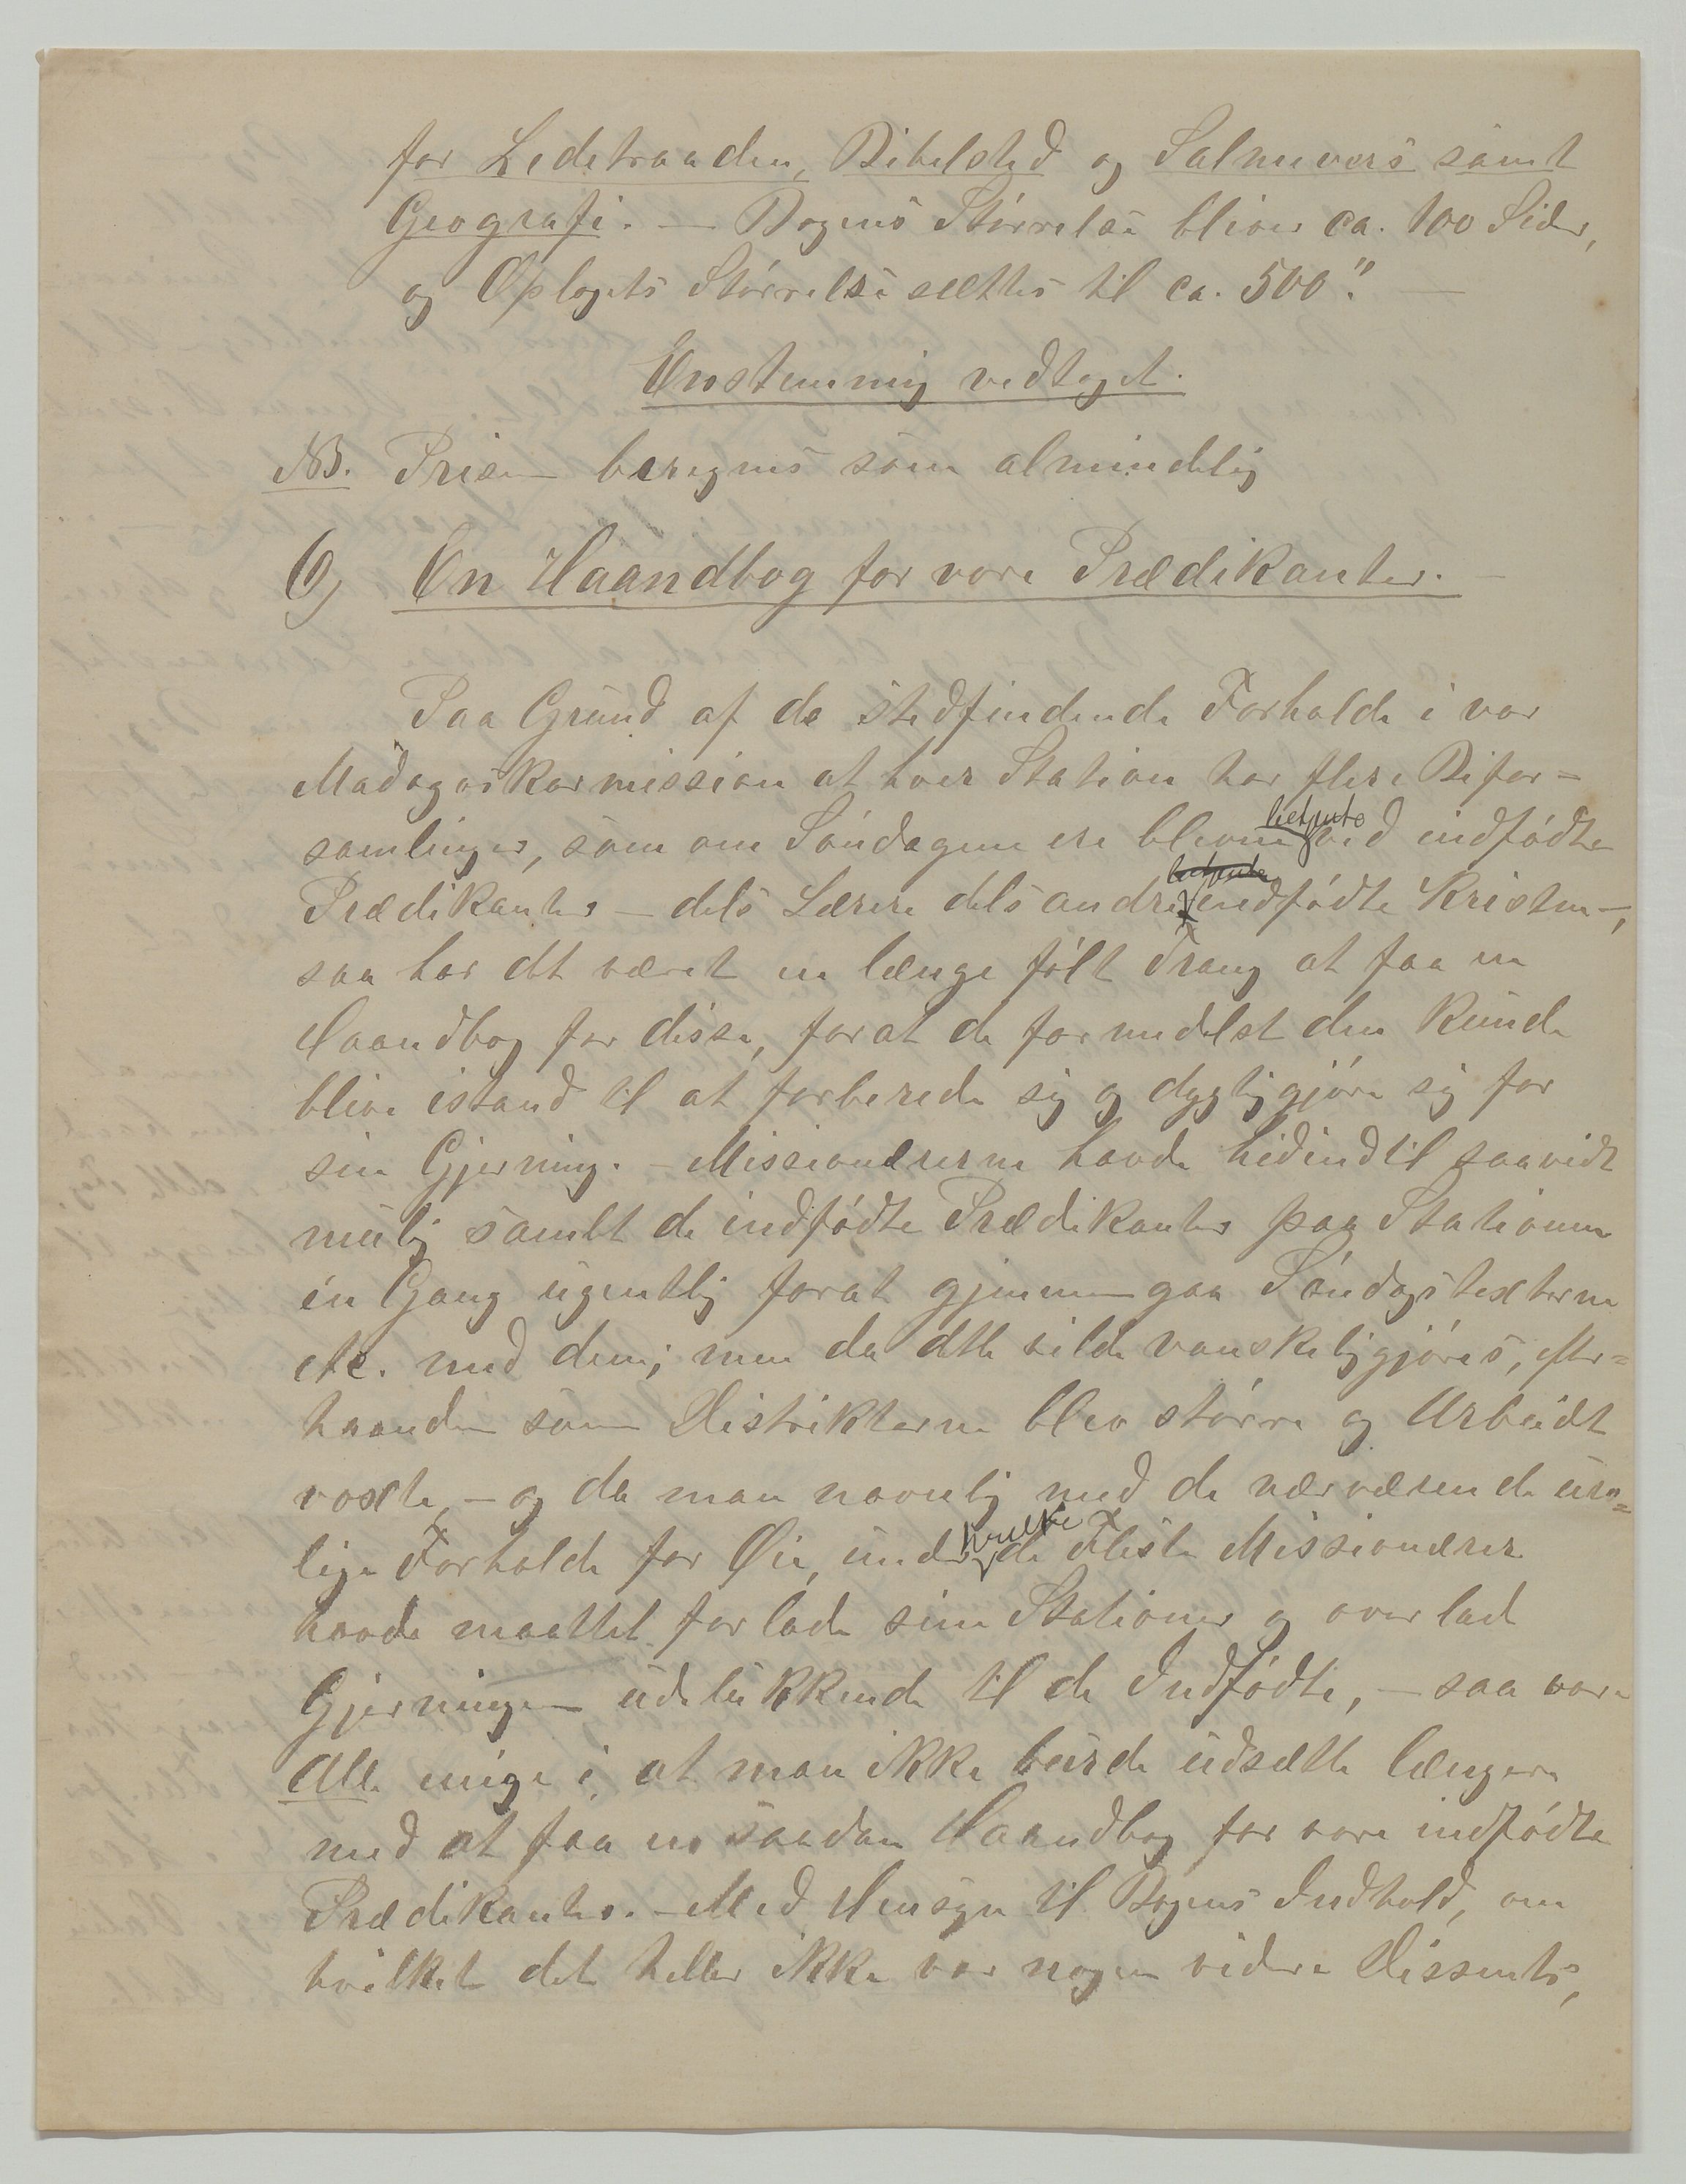 for Ledetraaden, Bibelsted og Salmevers samt
Geografi. — Bogens Størrelse bliver ca. 100 Sider,
og Oplagets Størrelse sættes til ca. 500". —
Enstemmig vedtaget.
NB. Prisen beregnes som almindelig
6) En Haandbog for vore Prædikanter. —
Paa Grund af de stedfindende Forholde i vor
Madagaskarmission at hver Station har flere Bifor=
samlinger, som om Søndagene ere blevne betjente ved indfødte
Prædikanter — dels Lærere dels andre betjente indfødte Kristne —,
saa har det været en længe følt Trang at faa en
Haandbog for disse, forat de formedelst den kunde
blive istand til at forberede sig og dygtiggjøre sig for
sin Gjerning. — Missionærerne havde hidindtil saavidt
mulig samlet de indfødte Prædikanter paa Stationerne
én Gang ugentlig forat gjennemgaa Søndagstexterne
etc. med dem; men da dette vilde vanskeliggjøres, efter=
haanden som Distrikterne blev større og Arbeidet
voxte, — og da man navnlig med de nærværende uro=
lige Forholde for Øie, under hvilke de fleste Missionærer
havde maattet forlade sine Stationer og overlad
Gjerningen udelukkende til de Indfødte, — saa vare
Alle enige i at man ikke burde udsætte længere
med at faa en saadan Haandbog for vore indfødte
Prædikanter. — Med Hensyn til Bogens Indhold, om
hvilket det heller ikke var nogen videre Dissents,